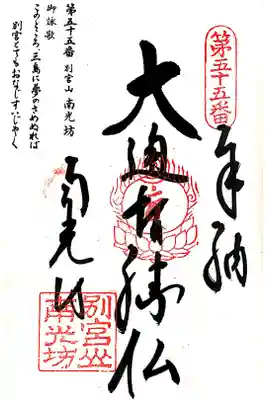 第五十五番
奉納
大通智勝仏
南光坊
別宮山
南光坊
第五十五番 別宮山 南光坊
御詠歌
このところ、三島に夢のさめぬれば
別宮とてもおなじすいじやく